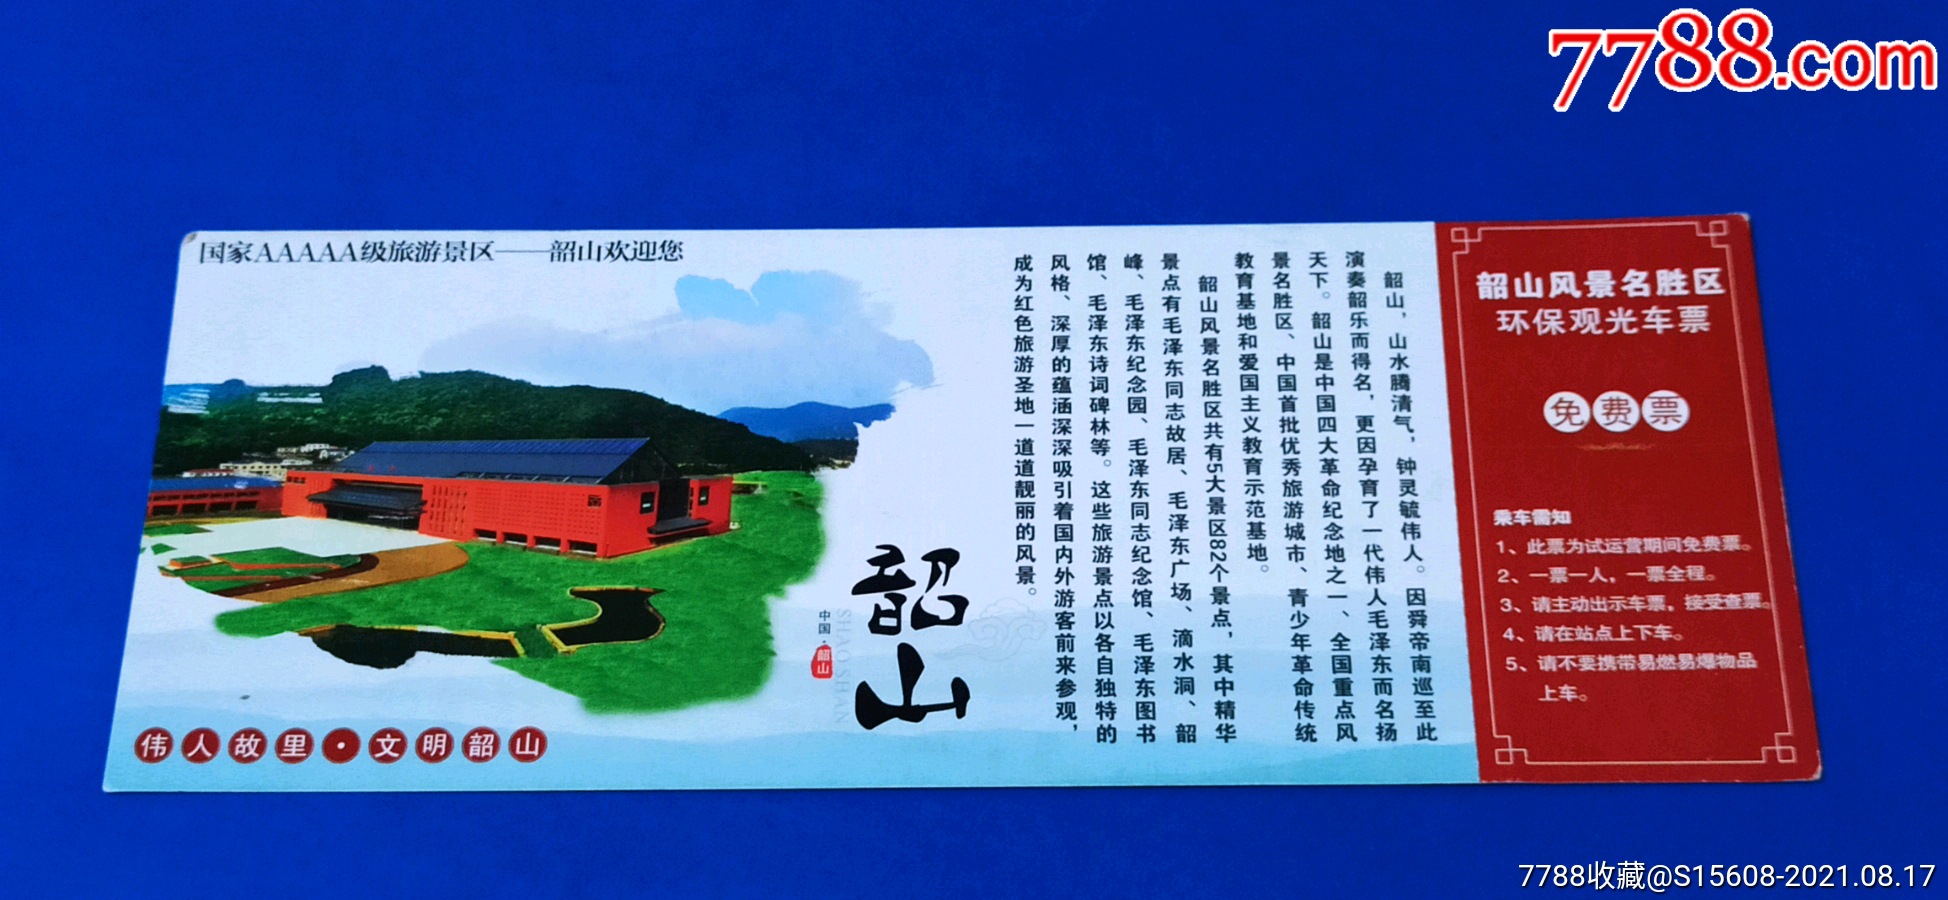 7788.com
国家AAAAA级旅游景区——韶山欢迎您
韶山，山水腾清气，钟灵毓伟人。因舜帝南巡至此
演奏韶乐而得名，更因孕育了一代伟人毛泽东而名扬
天下。韶山是中国四大革命纪念地之一、全国重点风
景名胜区、中国首批优秀旅游城市、青少年革命传统
教育基地和爱国主义教育示范基地。
韶山风景名胜区共有5大景区82个景点，其中精华
景点有毛泽东同志故居、毛泽东广场、滴水洞、韶
峰、毛泽东纪念园、毛泽东同志纪念馆、毛泽东图书
馆、毛泽东诗词碑林等。这些旅游景点以各自独特的
风格、深厚的蕴涵深深吸引着国内外游客前来参观，
成为红色旅游圣地一道道靓丽的风景。
韶山
中国·韶山
SHAO SHAN
伟人故里·文明韶山
韶山风景名胜区
环保观光车票
免费票
乘车需知
1、此票为试运营期间免费票。
2、一票一人，一票全程。
3、请主动出示车票，接受查票。
4、请在站点上下车。
5、请不要携带易燃易爆物品
上车。
7788收藏@S15608-2021.08.17